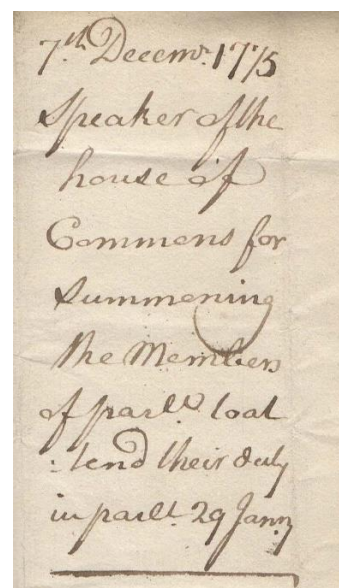 7.th Decemr. 1775
Speaker of the
house of
Commons for
Summening
the Members
of parlt. to at
:tend their duty
in parlt. 29 Janry